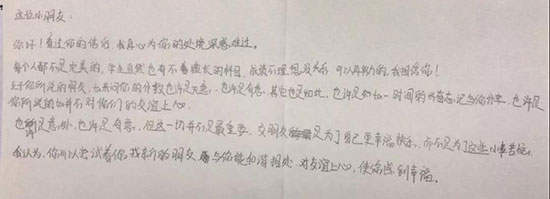 这位小朋友：
你好！看过你的信后，我真心为你的处境深感难过。
每个人都不是完美的，学生自然也有不善擅长的科目，成绩不理想没关系，可以再努力的，我相信你！
至于你所说的朋友，她来问你的分数也许是无意，也许是有意，其它也是如此，也许是她一时间的
你所说的她并不对你们的友谊上心。
也许是意外，也许是有意，但这一切并不是最重要，交朋友是为了自己更幸福快乐，而不是为了这些小事苦恼。
我认为，你可以尝试着你找新的朋友，与你能和谐相处，对友谊上心，使你感到幸福。